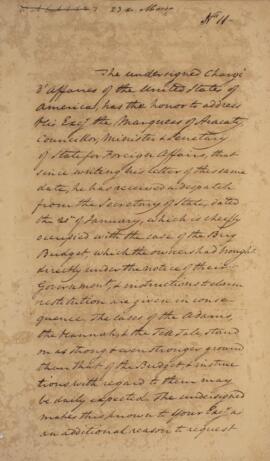 23 de Março
No 11
The undersigned Chargé
d'affaires of the United States of
America, has the honor to address
His Excy the Marquess of Aracaty,
Councillor, Minister & Secretary
of State for Foreign Affairs, that
since writing his letter of the same
date, he has received a despatch
from the Secretary of State, dated
the 20th of January, which is chiefly
occupied with the case of the Brig
Budget, which the owners had brought
directly under the notice of their
Government, & instructions to claim
restitution are given in conse-
quence. The cases of the Adams,
the Hannah, & the Tell Tale stand
on as strong & even stronger ground
than that of the Budget, & instruc-
tions with regard to them may
be daily expected. The undersigned
makes this known to Your Excy as
an additional reason to request